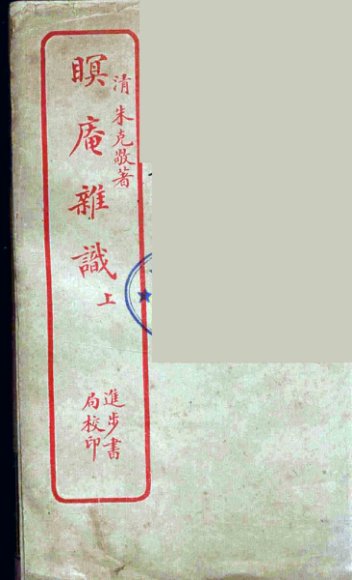 清朱克敬著
瞑庵雜識上
進步書
局校印